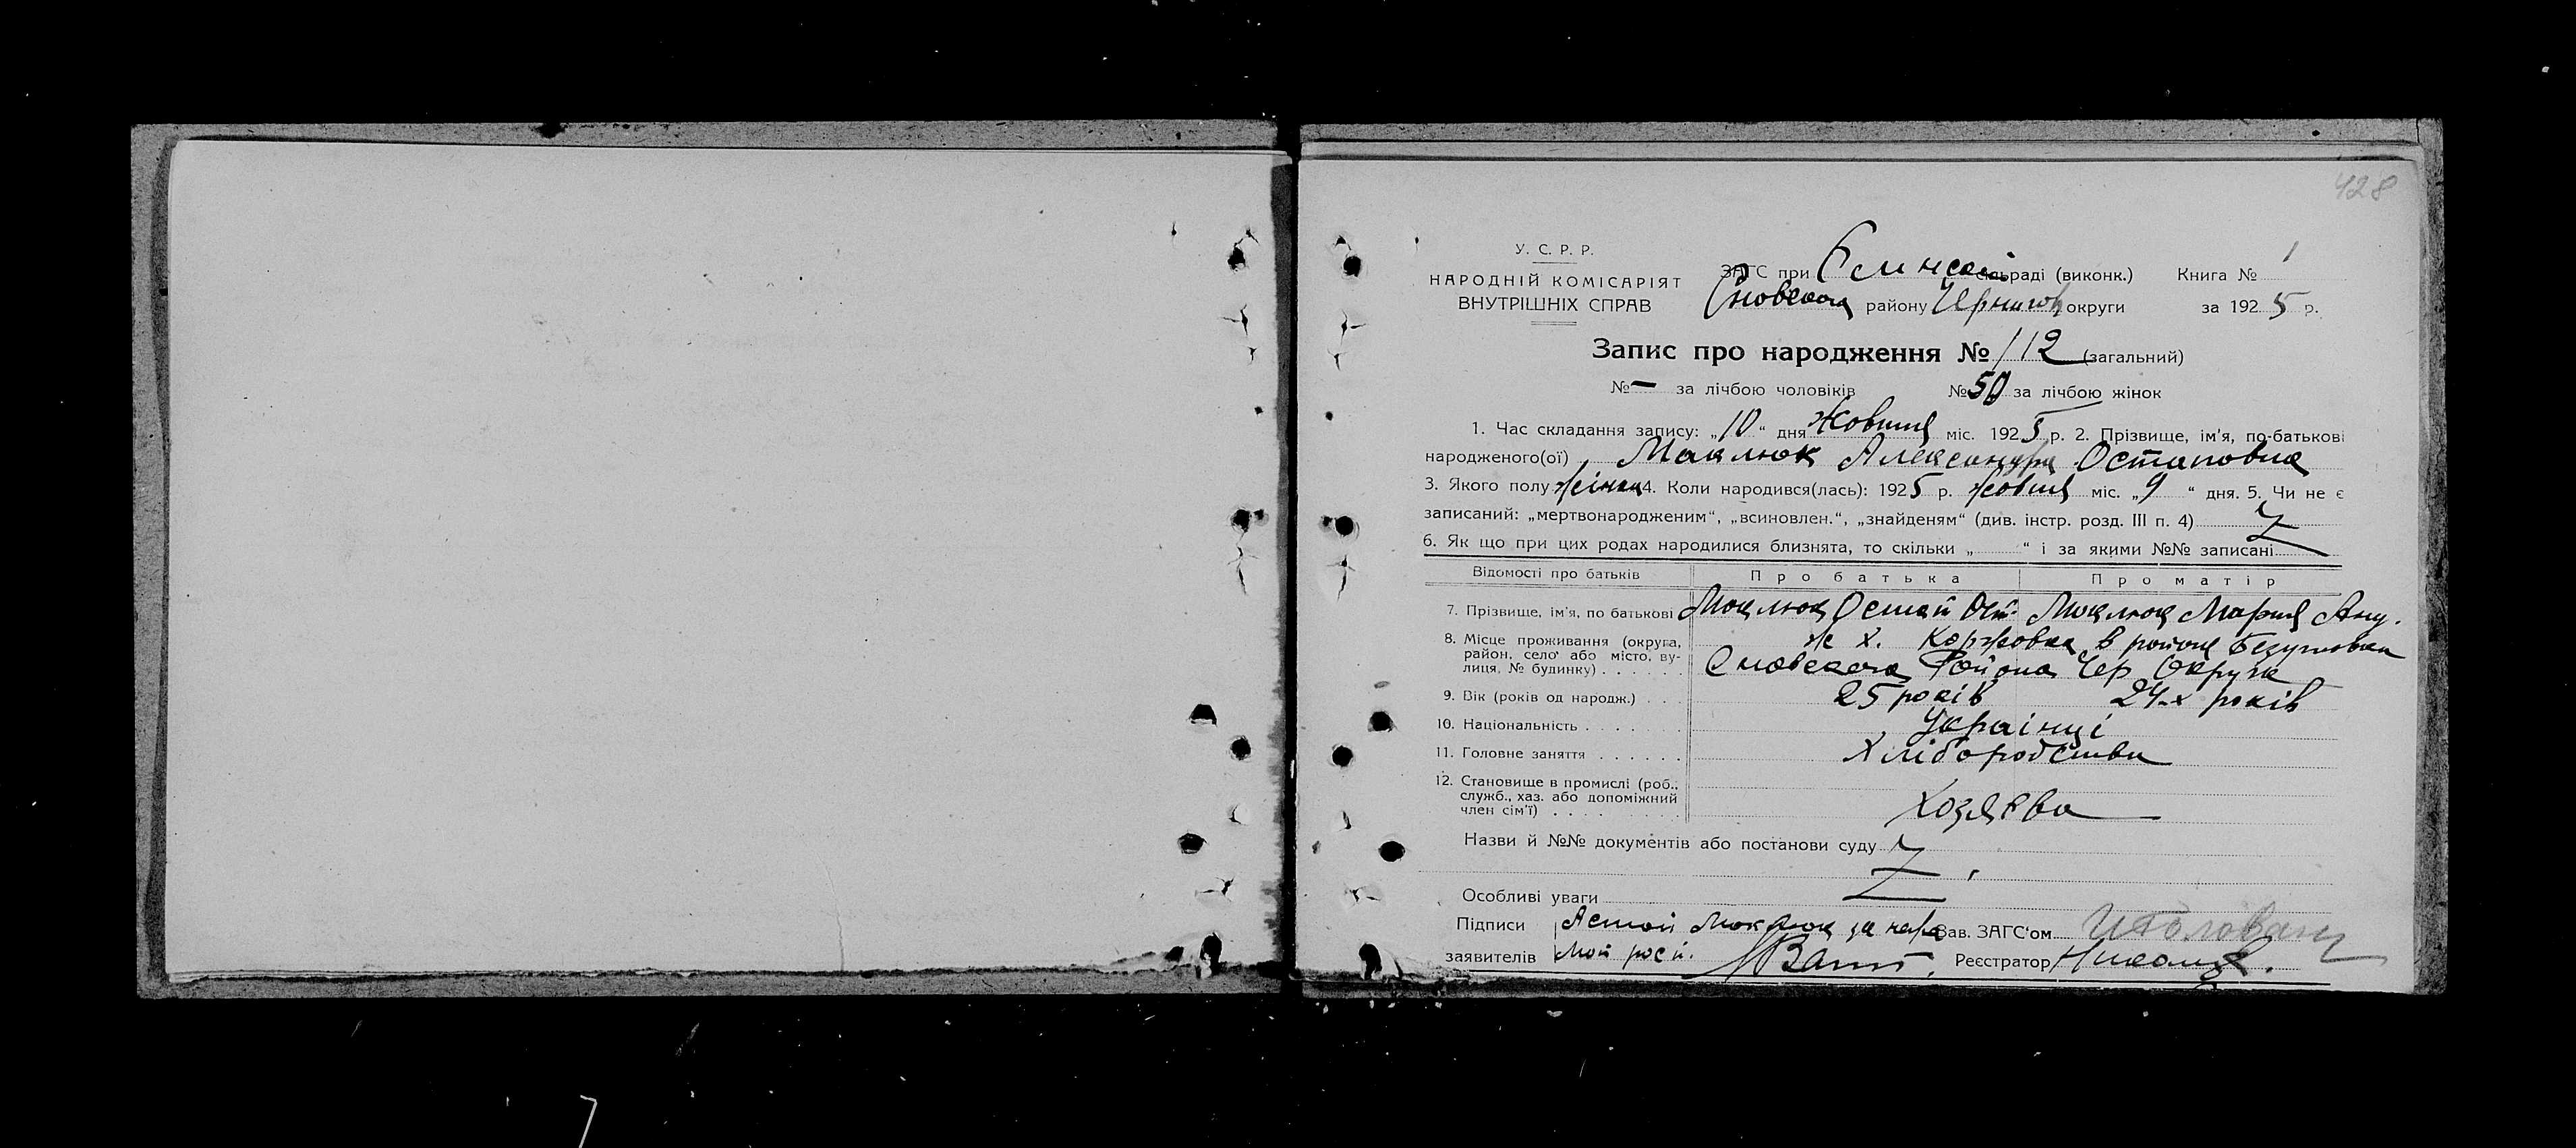 428
У. С. Р. Р.
НАРОДНІЙ КОМІСАРІЯТ
ВНУТРІШНІХ СПРАВ
ЗАГС при сільраді (виконк.) Книга № 1
Сновского району Чернигов округи за 1925 р.
Запис про народження № 112 (загальний)
№ — за лічбою чоловіків № 50 за лічбою жінок
1. Час складання запису: „10“ дня Жовтня міс. 1925 р. 2. Прізвище, ім'я, по-батькові
народженого(ої) Маклюк Александра Остаповна
3. Якого полу 4. Коли народився(лась): 1925 р. жовтня міс. „9“ дня. 5. Чи не є
записаний: „мертвонародженим“, „всиновлен.“, „знайденям“ (див. інстр. розд. III п. 4) Z
6. Як що при цих родах народилися близнята, то скільки „ “ і за якими №№ записані
Відомості про батьків Про батька Про матір
7. Прізвище, ім'я, по батькові Маклюк Остап Маклюк Мария
8. Місце проживання (округа, район, село або місто, вулиця, № будинку) . . . . . . х. Коржовка в районе
Сновского Района Чер Округи
9. Вік (років од народж.) . . . 25 років 24-х років
10. Національність . . . . . . . Українці
11. Головне заняття . . . . . . Хліборобство
12. Становище в промислі (роб., служб., хаз. або допоміжний член сім'ї) . . . . . . . . . Хозяєва
Назви й №№ документів або постанови суду Z
Особливі уваги
Підписи Маклюк за Зав. ЗАГС'ом
заявителів Реєстратор